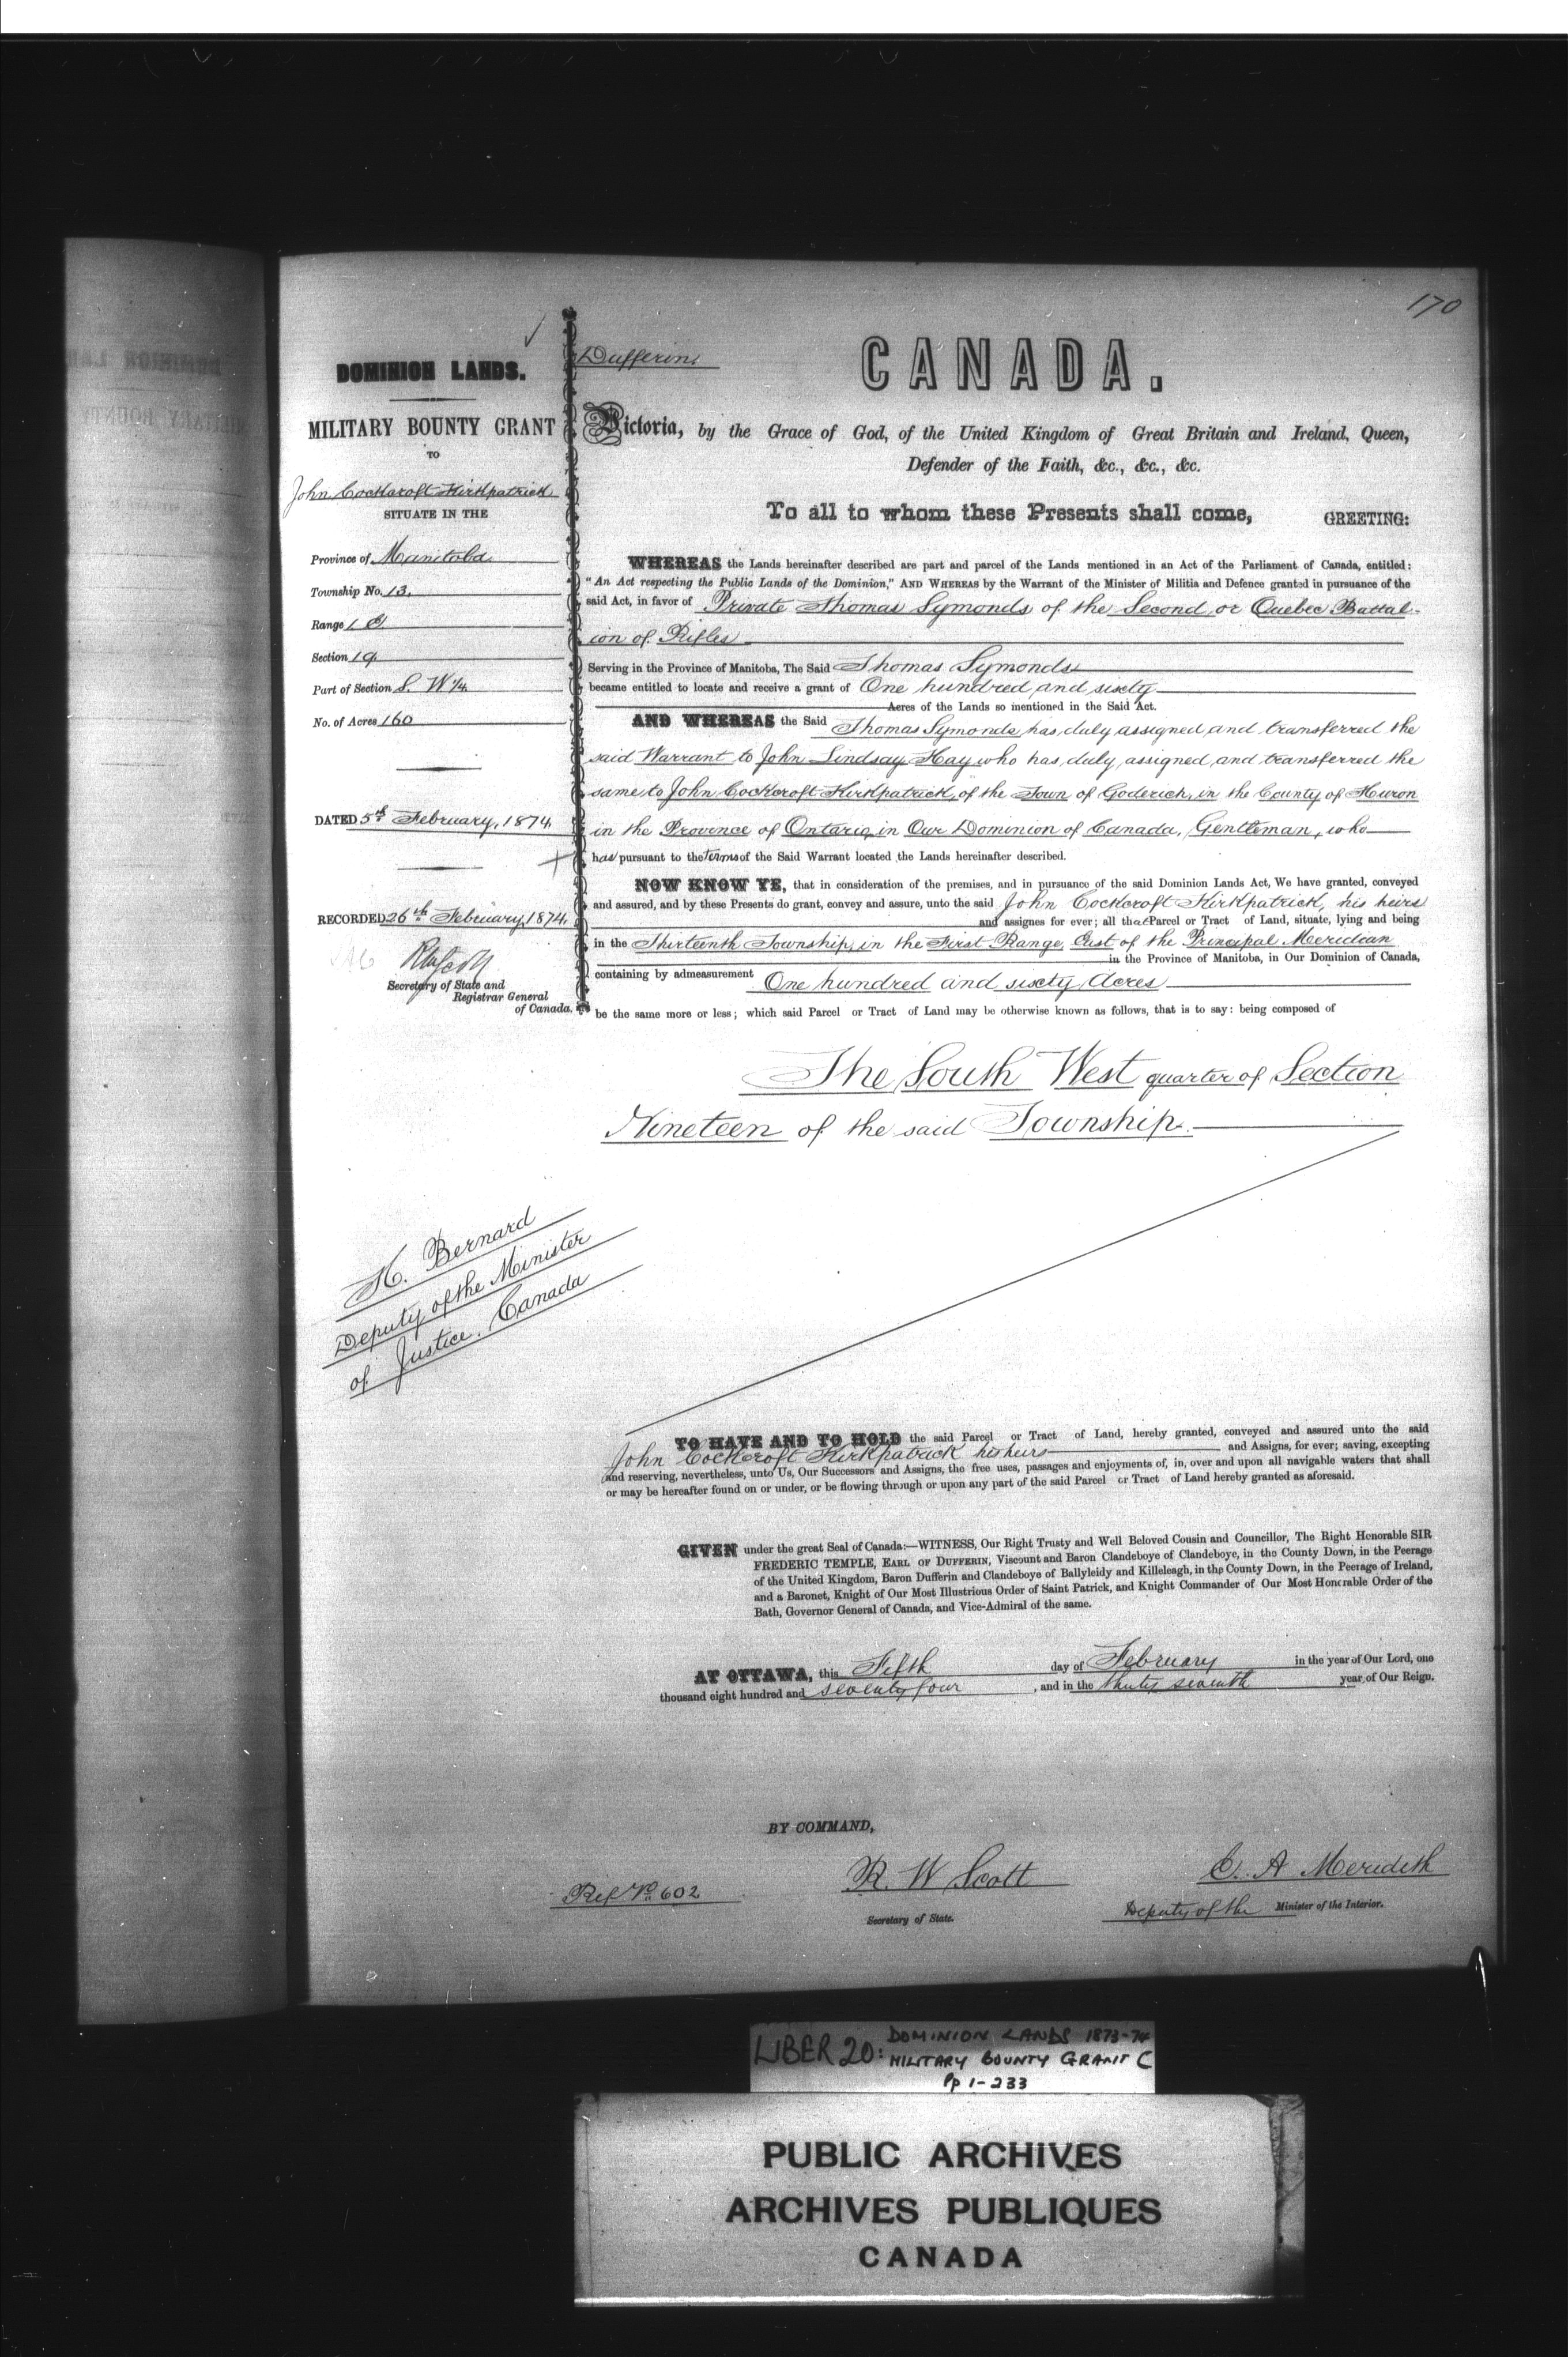 170
DOMINION LANDS.
MILITARY BOUNTY GRANT
TO
John Cockcroft Kirkpatrick
SITUATE IN THE
Province of Manitoba
Township No. 13.
Range 1 E.
Section 19.
Part of Section S. W 1/4
No. of Acres 160
DATED 5th February, 1874
RECORDED 26th February 1874.
RWScott
Secretary of State and
Registrar General
of Canada.
Dufferin
CANADA.
Victoria, by the Grace of God, of the United Kingdom of Great Britain and Ireland, Queen,
Defender of the Faith, &c., &c., &c.
To all to whom these Presents shall come, GREETING:
WHEREAS the Lands hereinafter described are part and parcel of the Lands mentioned in an Act of the Parliament of Canada, entitled:
"An Act respecting the Public Lands of the Dominion," AND WHEREAS by the Warrant of the Minister of Militia and Defence granted in pursuance of the
said Act, in favor of Private Thomas Symonds of the Second or Quebec Battal-
ion of Rifles
Serving in the Province of Manitoba, The Said Thomas Symonds
became entitled to locate and receive a grant of One hundred and sixty
Acres of the Lands so mentioned in the Said Act.
AND WHEREAS the Said Thomas Symonds has duly assigned and transferred the
said Warrant to John Lindsay Hay who has duly assigned and transferred the
same to John Cockcroft Kirkpatrick, of the Town of Goderich, in the County of Huron
in the Province of Ontario in Our Dominion of Canada, Gentleman, who
has pursuant to the terms of the Said Warrant located the Lands hereinafter described.
NOW KNOW YE, that in consideration of the premises, and in pursuance of the said Dominion Lands Act, We have granted, conveyed
and assured, and by these Presents do grant, convey and assure, unto the said John Cockcroft Kirkpatrick, his heirs
and assignes for ever; all that Parcel or Tract of Land, situate, lying and being
in the Thirteenth Township, in the First Range East of the Principal Meridian
in the Province of Manitoba, in Our Dominion of Canada,
containing by admeasurement One hundred and sixty Acres
be the same more or less; which said Parcel or Tract of Land may be otherwise known as follows, that is to say: being composed of
The South West quarter of Section
Nineteen of the said Township.
H. Bernard
Deputy of the Minister
of Justice. Canada
TO HAVE AND TO HOLD the said Parcel or Tract of Land, hereby granted, conveyed and assured unto the said
John Cockcroft Kirkpatrick his heirs and Assigns, for ever; saving, excepting
and reserving, nevertheless, unto Us, Our Successors and Assigns, the free uses, passages and enjoyments of, in, over and upon all navigable waters that shall
or may be hereafter found on or under, or be flowing through or upon any part of the said Parcel or Tract of Land hereby granted as aforesaid.
GIVEN under the great Seal of Canada:—WITNESS, Our Right Trusty and Well Beloved Cousin and Councillor, The Right Honorable SIR
FREDERIC TEMPLE, EARL OF DUFFERIN, Viscount and Baron Clandeboye of Clandeboye, in the County Down, in the Peerage
of the United Kingdom, Baron Dufferin and Clandeboye of Ballyleidy and Killeleagh, in the County Down, in the Peerage of Ireland,
and a Baronet, Knight of Our Most Illustrious Order of Saint Patrick, and Knight Commander of Our Most Honorable Order of the
Bath, Governor General of Canada, and Vice-Admiral of the same.
AT OTTAWA, this Fifth day of February in the year of Our Lord, one
thousand eight hundred and seventy four, and in the thirty seventh year of Our Reign.
BY COMMAND,
Ref No. 602
R. W Scott
Secretary of State.
E. A Meredith
Deputy of the Minister of the Interior.
LIBER 20: DOMINION LANDS 1873-74
MILITARY BOUNTY GRANT C
Pp 1-233
PUBLIC ARCHIVES
ARCHIVES PUBLIQUES
CANADA